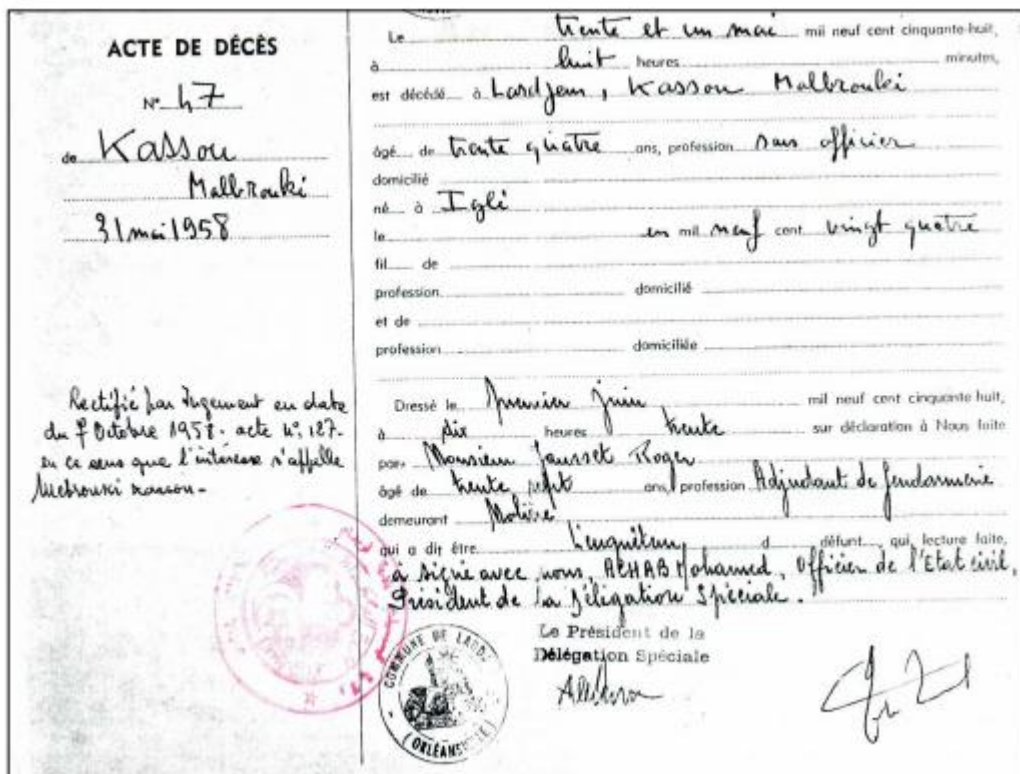 ACTE DE DÉCÈS
N° 47
de Kassou
Malbrouki
31 mai 1958
Rectifié par Jugement en date
du 7 Octobre 1958 - acte n° 127 -
en ce sens que l'intéressé s'appelle
Mebrouki Kassou -
Le trente et un mai mil neuf cent cinquante-huit,
à huit heures minutes,
est décédé à Lardjem, Kassou Malbrouki
âgé de trente quatre ans, profession sous officier
domicilié
né à Igli
le en mil neuf cent vingt quatre
fil de
profession domicilié
et de
profession domiciliée
Dressé le premier juin mil neuf cent cinquante-huit,
à dix heures trente sur déclaration à Nous faite
par Monsieur Jausset Roger
âgé de trente sept ans, profession Adjudant de Gendarmerie
demeurant Molière
qui a dit être d défunt qui, lecture faite,
a signé avec nous, ACHAB Mohamed, Officier de l'Etat civil,
Président de la Délégation Spéciale.
Le Président de la
Délégation Spéciale
COMMUNE DE
(ORLÉANSVILLE)